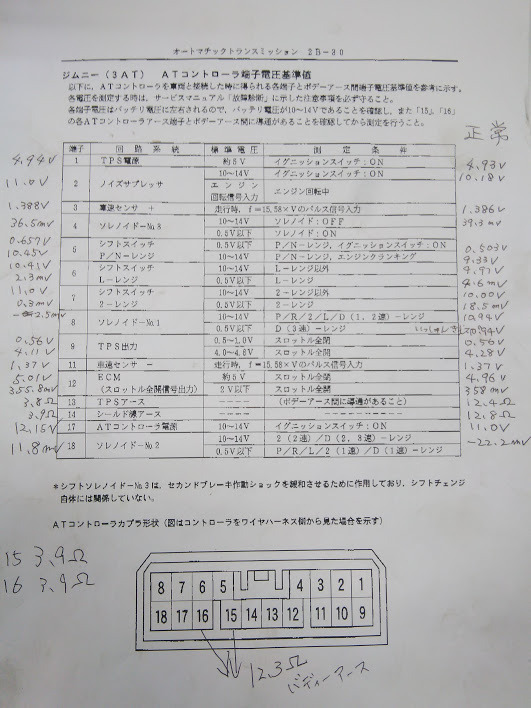 オートマチックトランスミッション 2B-30
ジムニー(3AT) ATコントローラ端子電圧基準値
以下に、ATコントローラを車両と接続した時に得られる各端子とボデーアース間端子電圧基準値を参考に示す。
各電圧を測定する時は、サービスマニュアル「故障診断」に示した注意事項を必ず守ること。
各端子電圧はバッテリ電圧に左右されるので、バッテリ電圧が10〜14Vであることを確認し、また「15」、「16」
の各ATコントローラアース端子とボデーアース間に導通があることを確認してから測定を行うこと。
正常
端子 回路系統 標準電圧 測定条件
4.94V 1 TPS電源 約5V イグニッションスイッチ:ON 4.93V
11.0V 2 ノイズサプレッサ 10〜14V イグニッションスイッチ:ON 10.18V
エンジン回転信号入力 エンジン回転中
1.388V 3 車速センサ + 走行時、f=15.58×Vのパルス信号入力 1.386V
36.5mV 4 ソレノイドNo.3 10〜14V ソレノイド:OFF 39.3mV
0.5V以下 ソレノイド:ON
0.657V 5 シフトスイッチ P/N-レンジ 0.5V以下 P/N-レンジ、イグニッションスイッチ:ON 0.503V
10.45V 10〜14V P/N-レンジ、エンジンクランキング 9.33V
10.41V 6 シフトスイッチ L-レンジ 10〜14V L-レンジ以外 9.97V
2.3mV 0.5V以下 L-レンジ 4.6mV
11.0V 7 シフトスイッチ 2-レンジ 10〜14V 2-レンジ以外 10.00V
0.3mV 0.5V以下 2-レンジ 18.5mV
-2.5mV 8 ソレノイドNo.1 10〜14V P/R/2/L/D(1、2速)-レンジ 10.94V
0.5V以下 D(3速)-レンジ
0.56V 9 TPS出力 0.5〜1.0V スロットル全閉 0.56V
4.11V 4.0〜4.6V スロットル全開 4.28V
1.37V 11 車速センサ - 走行時、f=15.58×Vのパルス信号入力 1.37V
5.01V 12 ECM (スロットル全開信号出力) 約5V スロットル全閉 4.96V
355.8mV 2V以下 スロットル全開 358mV
3.8Ω 13 TPSアース ---- (ボデーアース間に導通があること) 12.4Ω
3.9Ω 14 シールド線アース ---- ---------- 12.8Ω
12.15V 17 ATコントローラ電源 10〜14V イグニッションスイッチ:ON 11.0V
11.8mV 18 ソレノイドNo.2 10〜14V 2(2速)/D(2、3速)-レンジ -22.2mV
0.5V以下 P/R/L/2(1速)/D(1速)-レンジ
*シフトソレノイドーNo.3は、セカンドブレーキ作動ショックを緩和させるために作用しており、シフトチェンジ
自体には関係していない。
ATコントローラカプラ形状(図はコントローラをワイヤハーネス側から見た場合を示す)
15 3.9Ω
16 3.9Ω
8 7 6 5 4 3 2 1
18 17 16 15 14 13 12 11 10 9
12.3Ω
バディーアース